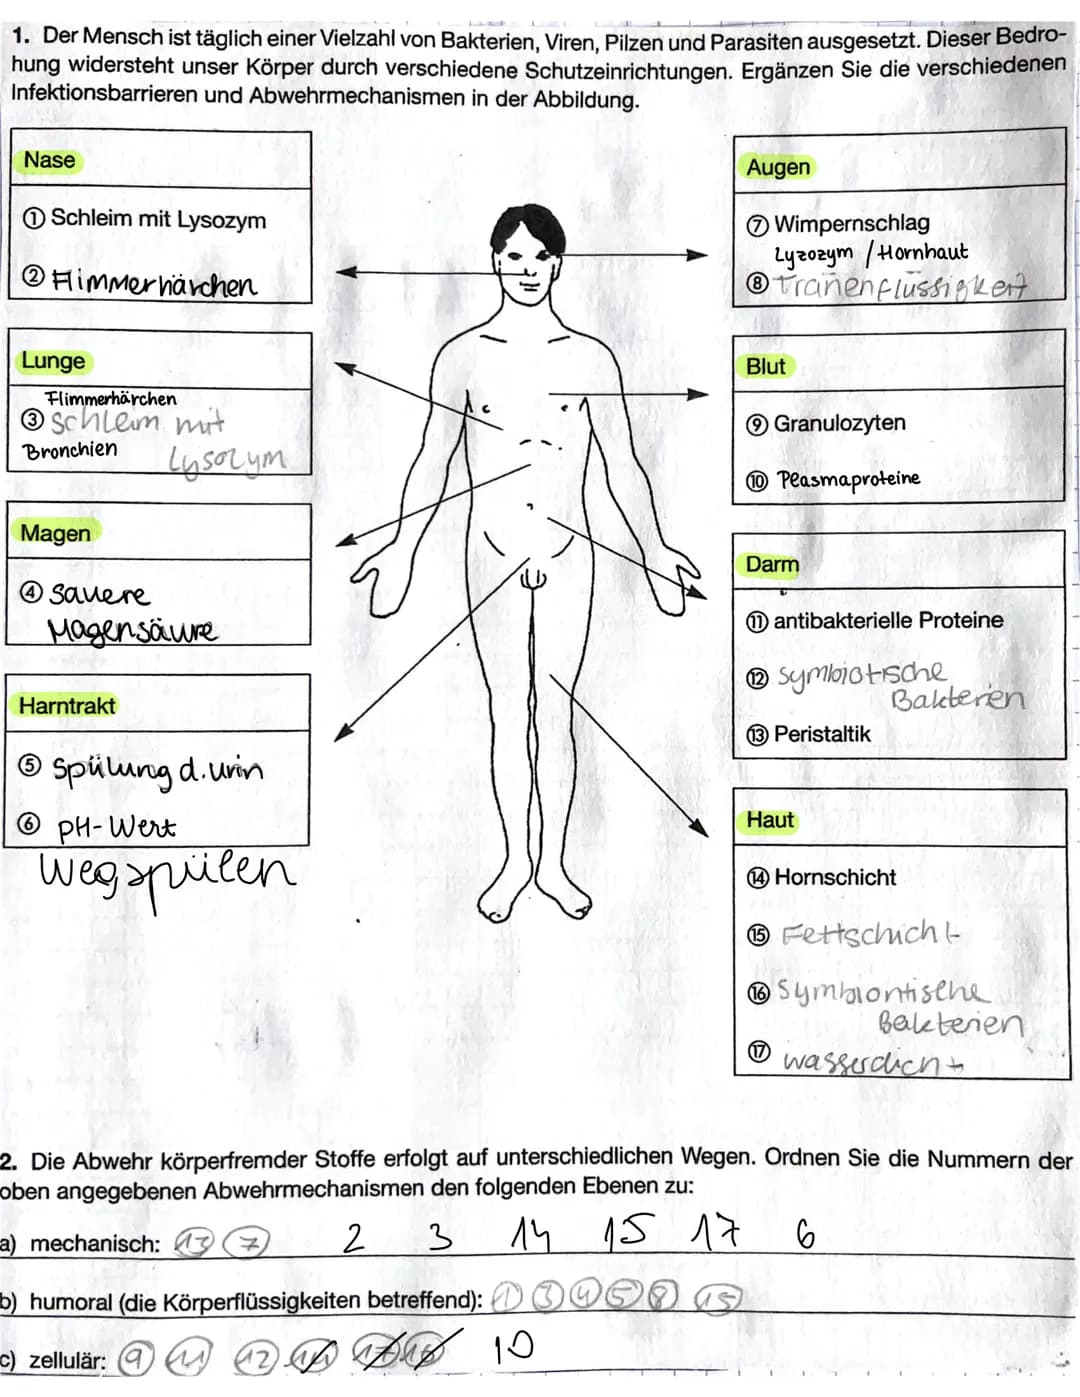 1. Der Mensch ist täglich einer Vielzahl von Bakterien, Viren, Pilzen und Parasiten ausgesetzt. Dieser Bedro-
hung widersteht unser Körper durch verschiedene Schutzeinrichtungen. Ergänzen Sie die verschiedenen
Infektionsbarrieren und Abwehrmechanismen in der Abbildung.
Nase
① Schleim mit Lysozym
② Flimmerhärchen
Lunge
Flimmerhärchen
③ Schleim mit
Bronchien Lysozym
Magen
④ Sauere
Magensäure
Harntrakt
⑤ Spülung d. Urin
⑥ pH-Wert
Wegspülen
Augen
⑦ Wimpernschlag
Lyzozym / Hornhaut
⑧ Tränenflüssigkeit
Blut
⑨ Granulozyten
⑩ Plasmaproteine
Darm
⑪ antibakterielle Proteine
⑫ symbiotische
Bakterien
⑬ Peristaltik
Haut
⑭ Hornschicht
⑮ Fettschicht
⑯ Symbiontische
Bakterien
⑰ wasserdicht
2. Die Abwehr körperfremder Stoffe erfolgt auf unterschiedlichen Wegen. Ordnen Sie die Nummern der
oben angegebenen Abwehrmechanismen den folgenden Ebenen zu:
a) mechanisch: 13 7 2 3 14 15 17 6
b) humoral (die Körperflüssigkeiten betreffend): 1 3 4 5 8 15
c) zellulär: 9 11 12 10